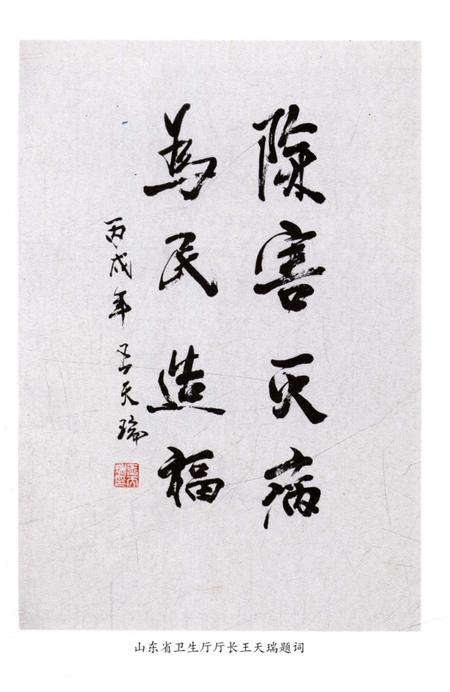 除害灭病
為民造福
丙戌年 王天瑞
山东省卫生厅厅长王天瑞题词